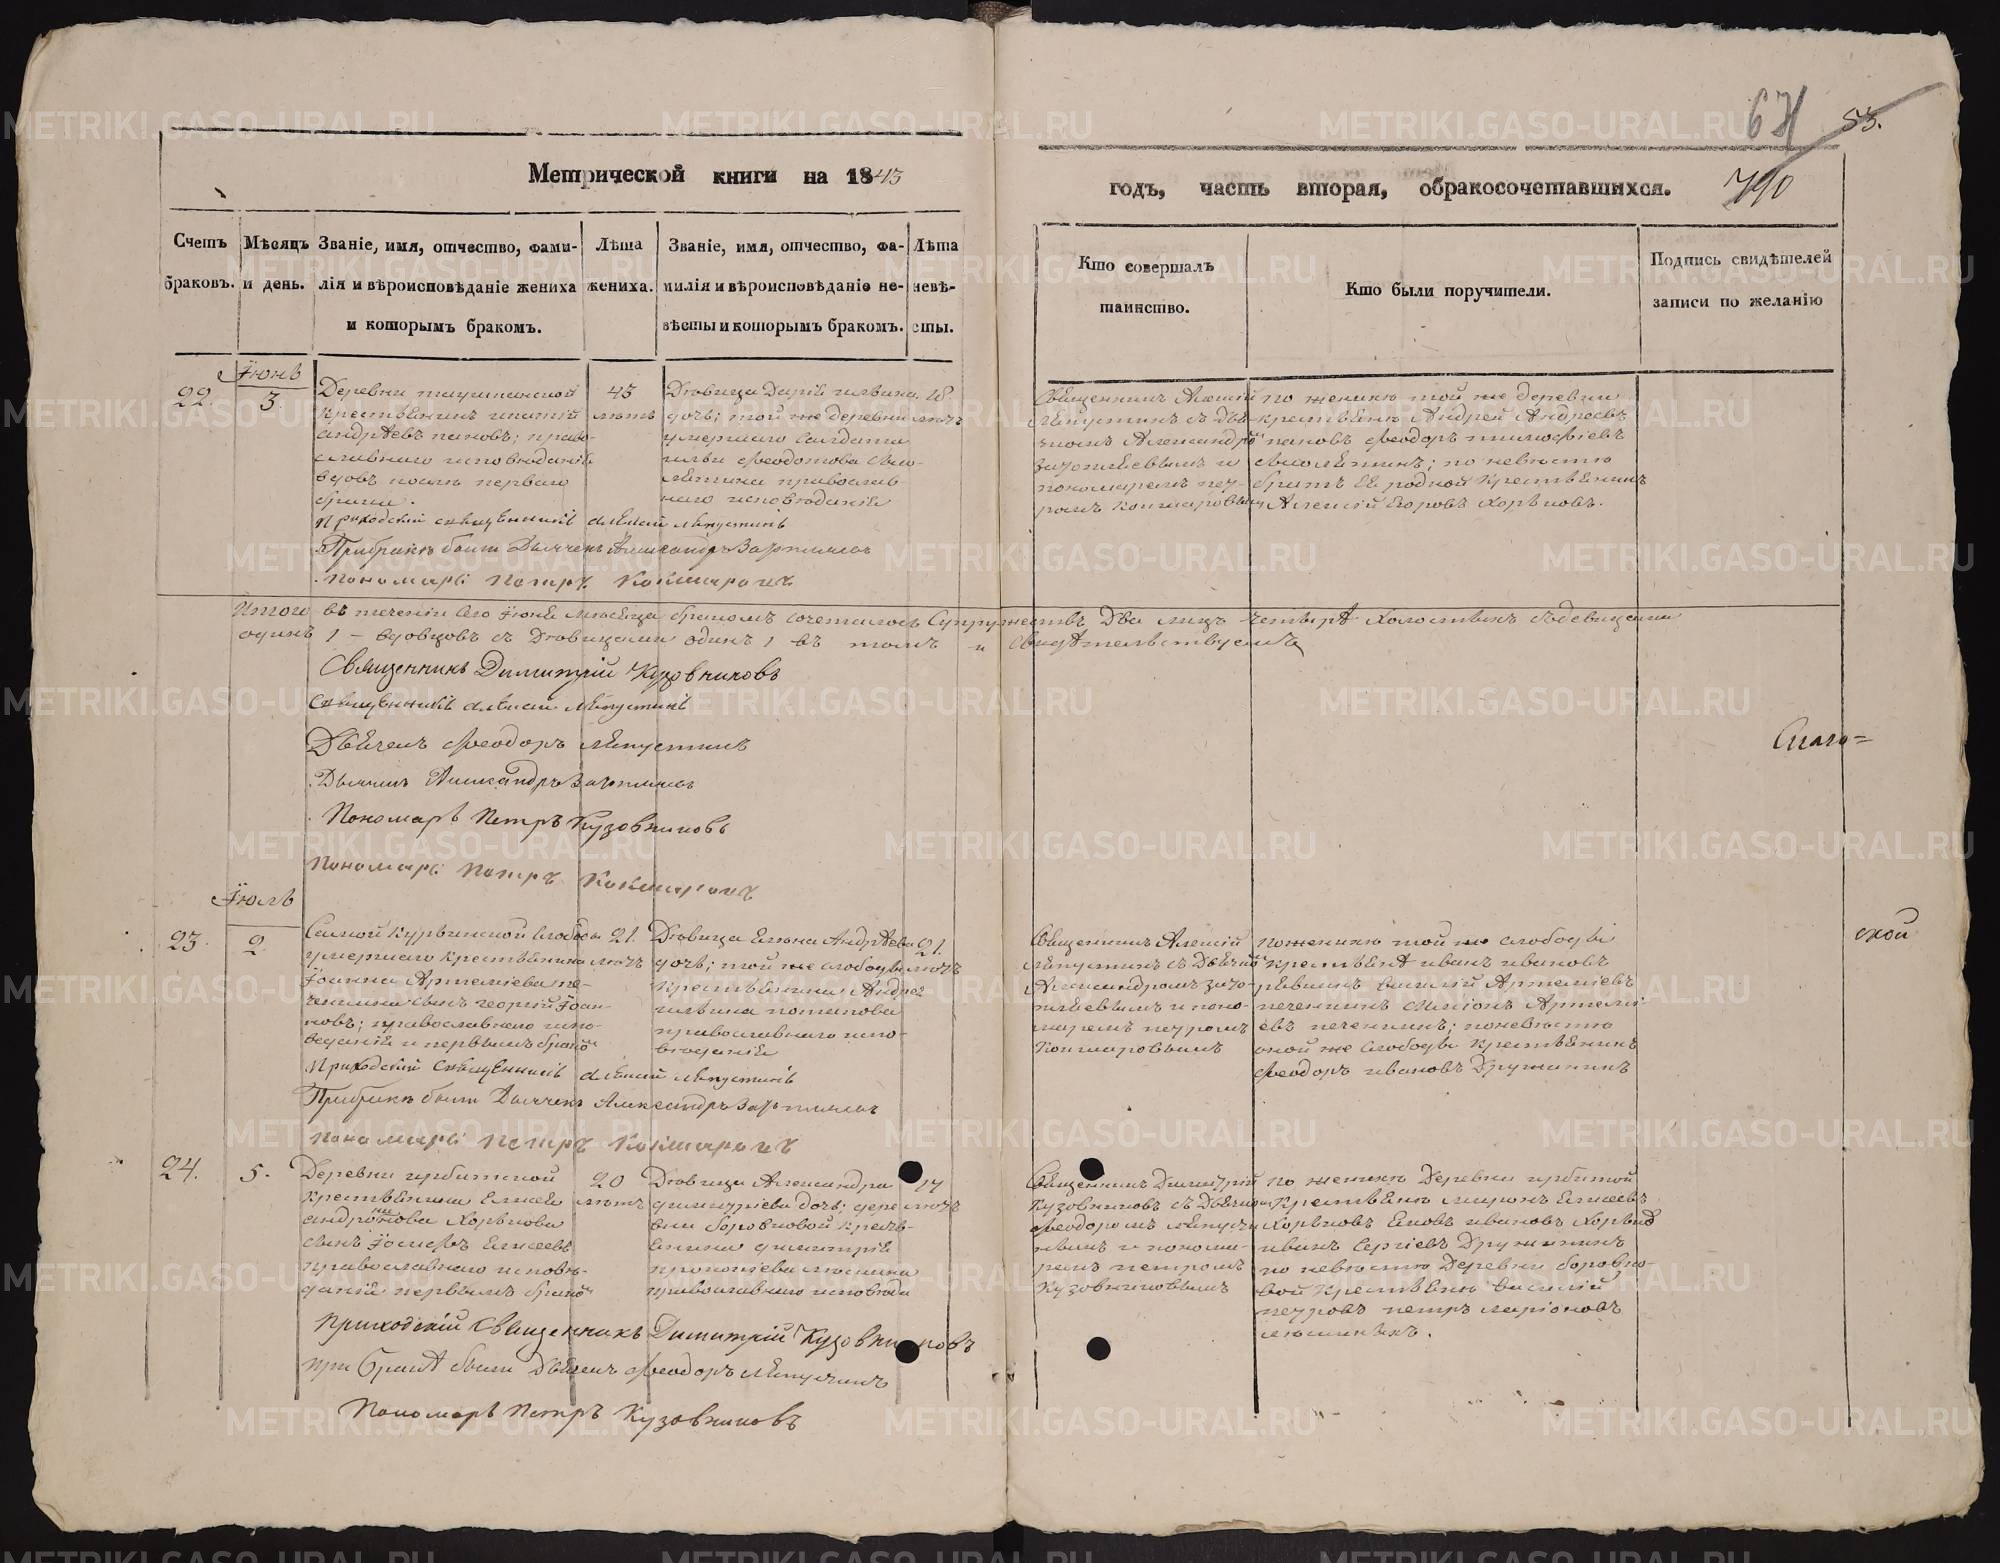 Метрической книги на 1843
годъ, часть вторая, обракосочетавшихся.
671
53.
790
Счетъ браковъ.
Мѣсяцъ и день.
Званіе, имя, отчество, фами-
лія и вѣроисповѣданіе жениха
и которымъ бракомъ.
Лѣта
жениха.
Званіе, имя, отчество, фа-
милія и вѣроисповѣданіе не-
вѣсты и которымъ бракомъ.
Лѣта
невѣ-
сты.
Кто совершалъ
таинство.
Кто были поручители.
Подпись свидѣтелей
записи по желанію
Іюнь
22.
3.
Деревни
крестьянинъ
андрѣевъ пановъ; право-
славнаго исповѣданія
вдовъ послѣ перваго
брака.
43
лѣтъ
Дѣвица Дарія ильина
дочь; той же деревни
умершаго Салдата
ильи Феодотова
православ-
наго исповѣданія
18
лѣтъ
Священникъ Алексій
Лепустинъ съ Дья-
чкомъ Александромъ
и
пономаремъ пет-
ромъ Кокшаровымъ
по женихѣ той же деревни
крестьяне Андрей Андреевъ
пановъ Феодоръ
по невѣстѣ
братъ ея родной крестьянинъ
Алексій Егоровъ Хорьковъ.
Приходскій священникъ алексий лепустинъ
При бракѣ были Дьячекъ Александръ
пономарь Петръ Кокшаровъ
Итого въ теченіи сего Іюня месяца бракомъ сочеталось Супружествъ Два лицъ четыре Холостыхъ съ девицами
одинъ 1 – вдовцовъ съ Дѣвицами одинъ 1 въ томъ и свидѣтельствуемъ
Священникъ Димитрій Кузовниковъ
Священникъ алексий лепустинъ
Дьячекъ Феодоръ лепустинъ
Дьячекъ Александръ
Пономарь Петръ Кузовниковъ
Пономарь Петръ Кокшаровъ
Слаго=
Іюль
23.
2.
Самой Курьинской слободы
умершаго крестьянина
Іоанна Артеміева пе-
ченкина сынъ георгій Іоан-
новъ; православнаго испо-
веданія и первымъ бракомъ
21.
лѣтъ
Дѣвица Елена Андрѣева
дочь; той же слободы
крестьянина Андрея
ильина потапова
православнаго испо-
вѣданія
21.
лѣтъ
Священникъ Алексій
лепустинъ съ Дьячкомъ
Александромъ
и поно-
маремъ петромъ
Кокшаровымъ
по женихѣ той же слободы
крестьяне иванъ ивановъ
василій Артеміевъ
печенкинъ Симіонъ Артемі-
евъ печенкинъ; по невѣсте
оной же слободы крестьянинъ
Феодоръ ивановъ Дружининъ
ской
Приходский Священникъ алексий лепустинъ
При бракѣ были Дьячекъ Александръ
пономарь Петръ Кокшаровъ
24.
5.
Деревни ирбитской
крестьянина Елисея
андроникова Хорькова
сынъ Іосифъ Елисеевъ
православнаго исповѣ-
данія первымъ бракомъ
20
лѣтъ
Дѣвица Александра
димитріева дочь; дере-
вни боровковой кресть-
янина димитрія
прокопіева
православнаго исповѣда
17
лѣтъ
Священникъ Димитрій
Кузовниковъ съ Дьячкомъ
Феодоромъ лепусти-
нымъ и понома-
ремъ петромъ
Кузовниковымъ
по женихѣ Деревни ирбитской
крестьяне Миронъ Елисеевъ
Хорьковъ ивановъ Хорьковъ
иванъ Сергіевъ Дружининъ
по невѣстѣ Деревни боровко-
вой крестьяне василій
петровъ петръ ларіоновъ
Приходскій священникъ Димитрій Кузовниковъ
при бракѣ были Дьячекъ Феодоръ лепустинъ
Пономарь Петръ Кузовниковъ
METRIKI.GASO-URAL.RU